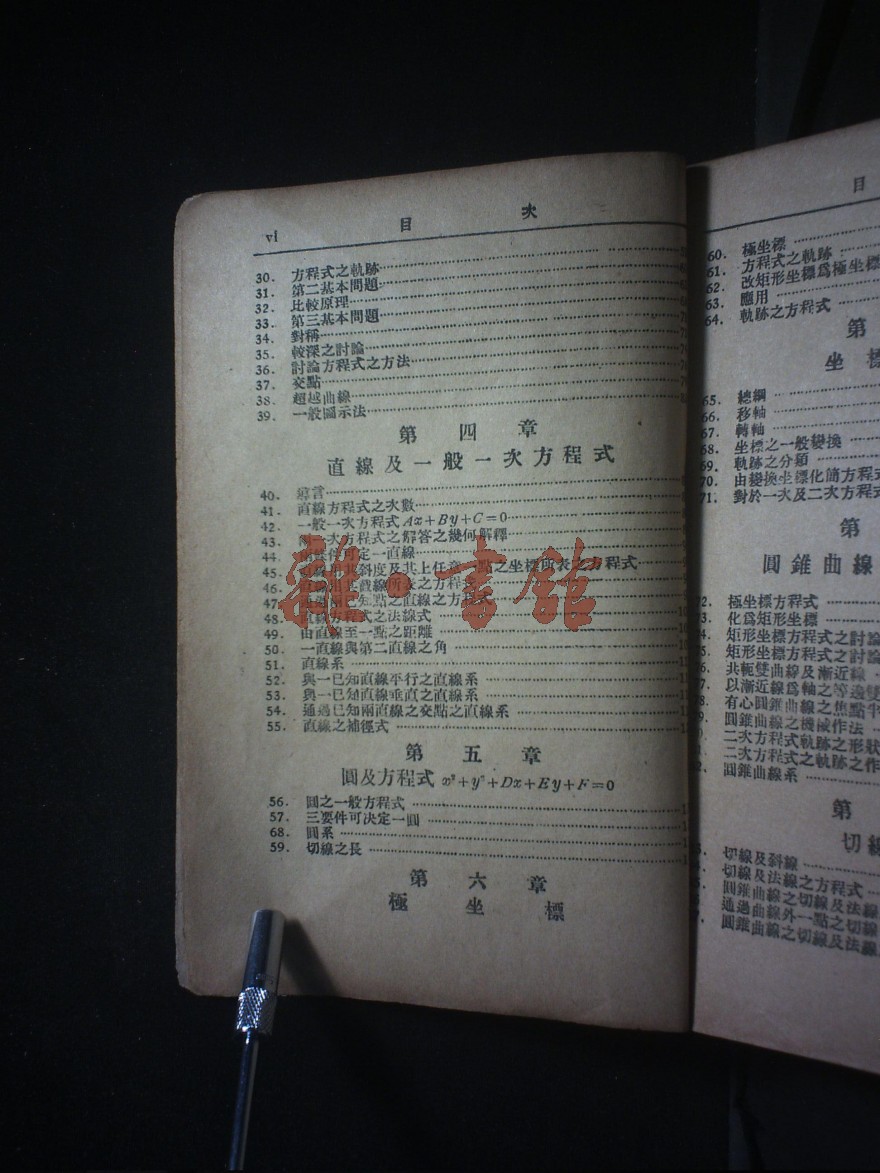 vi 目 次
30. 方程式之軌跡
31. 第二基本問題
32. 比較原理
33. 第三基本問題
34. 對稱
35. 較深之討論
36. 討論方程式之方法
37. 交點
38. 超越曲線
39. 一般圖示法
第 四 章
直線及一般一次方程式
40. 導言
41. 直線方程式之次數
42. 一般一次方程式 Ax+By+C=0
43. 一次方程式之解答之幾何解釋
44. 件可定一直線
45. 斜度及其上任意一點之坐標所表之方程式
46. 截線所表之方程式
47. 已知點之直線之方程式
48. 直線方程式之法線式
49. 由直線至一點之距離
50. 一直線與第二直線之角
51. 直線系
52. 與一已知直線平行之直線系
53. 與一已知直線垂直之直線系
54. 通過已知兩直線之交點之直線系
55. 直線之補徑式
第 五 章
圓及方程式 x²+y²+Dx+Ey+F=0
56. 圓之一般方程式
57. 三要件可決定一圓
68. 圓系
59. 切線之長
第 六 章
極 坐 標
目
60. 極坐標
61. 方程式之軌跡
62. 改矩形坐標爲極坐標
63. 應用
64. 軌跡之方程式
第
坐 標
65. 總綱
66. 移軸
67. 轉軸
68. 坐標之一般變換
69. 軌跡之分類
70. 由變換坐標化簡方程式
71. 對於一次及二次方程式
第
圓錐曲線
72. 極坐標方程式
73. 化爲矩形坐標
74. 矩形坐標方程式之討論
75. 矩形坐標方程式之討論
76. 共軛雙曲線及漸近線
77. 以漸近線爲軸之等邊雙
78. 有心圓錐曲線之焦點半
79. 圓錐曲線之機械作法
二次方程式軌跡之形狀
二次方程式之軌跡之作
圓錐曲線系
第
切線
切線及斜線
切線及法線之方程式
圓錐曲線之切線及法線
通過曲線外一點之切線
圓錐曲線之切線及法線
書館